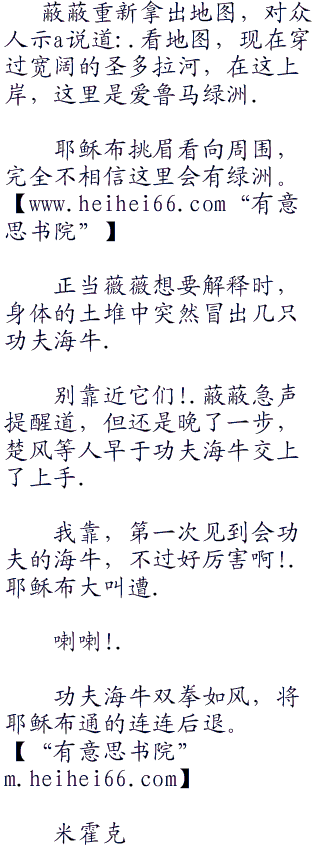 蔽蔽重新拿出地图，对众
人示a说道:.看地图，现在穿
过宽阔的圣多拉河，在这上
岸，这里是爱鲁马绿洲.
耶稣布挑眉看向周围，
完全不相信这里会有绿洲。
【www.heihei66.com“有意
思书院”】
正当薇薇想要解释时，
身体的土堆中突然冒出几只
功夫海牛.
别靠近它们!.蔽蔽急声
提醒道，但还是晚了一步，
楚风等人早于功夫海牛交上
了上手.
我靠，第一次见到会功
夫的海牛，不过好厉害啊!.
耶稣布大叫遭.
喇喇!.
功夫海牛双拳如风，将
耶稣布通的连连后退。
【“有意思书院”
m.heihei66.com】
米霍克